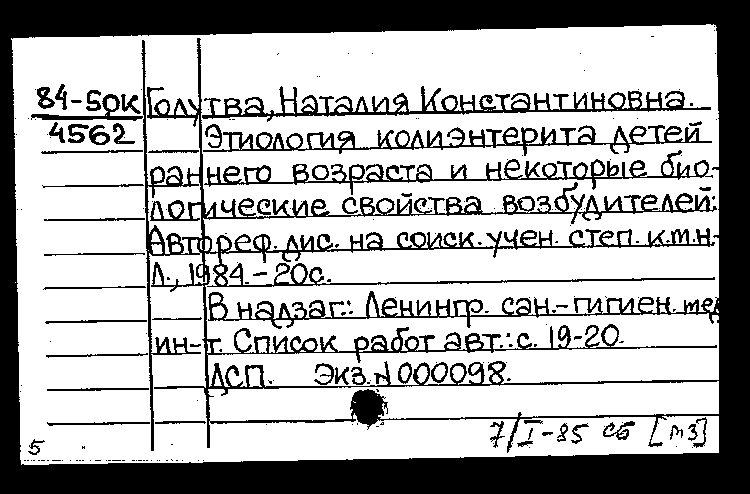 84-5ОК Голутва, Наталия Константиновна.
4562 Этиология колиэнтерита детей
раннего возраста и некоторые био-
логические свойства возбудителей:
Автореф. дис. на соиск. учен. степ. к.м.н.-
Л., 1984.-20с.
В надзаг.: Ленингр. сан.-гигиен. мед
ин-т. Список работ авт.: с. 19-20.
ДСП. Экз.N000098.
7/I-85 сб [мз]
5